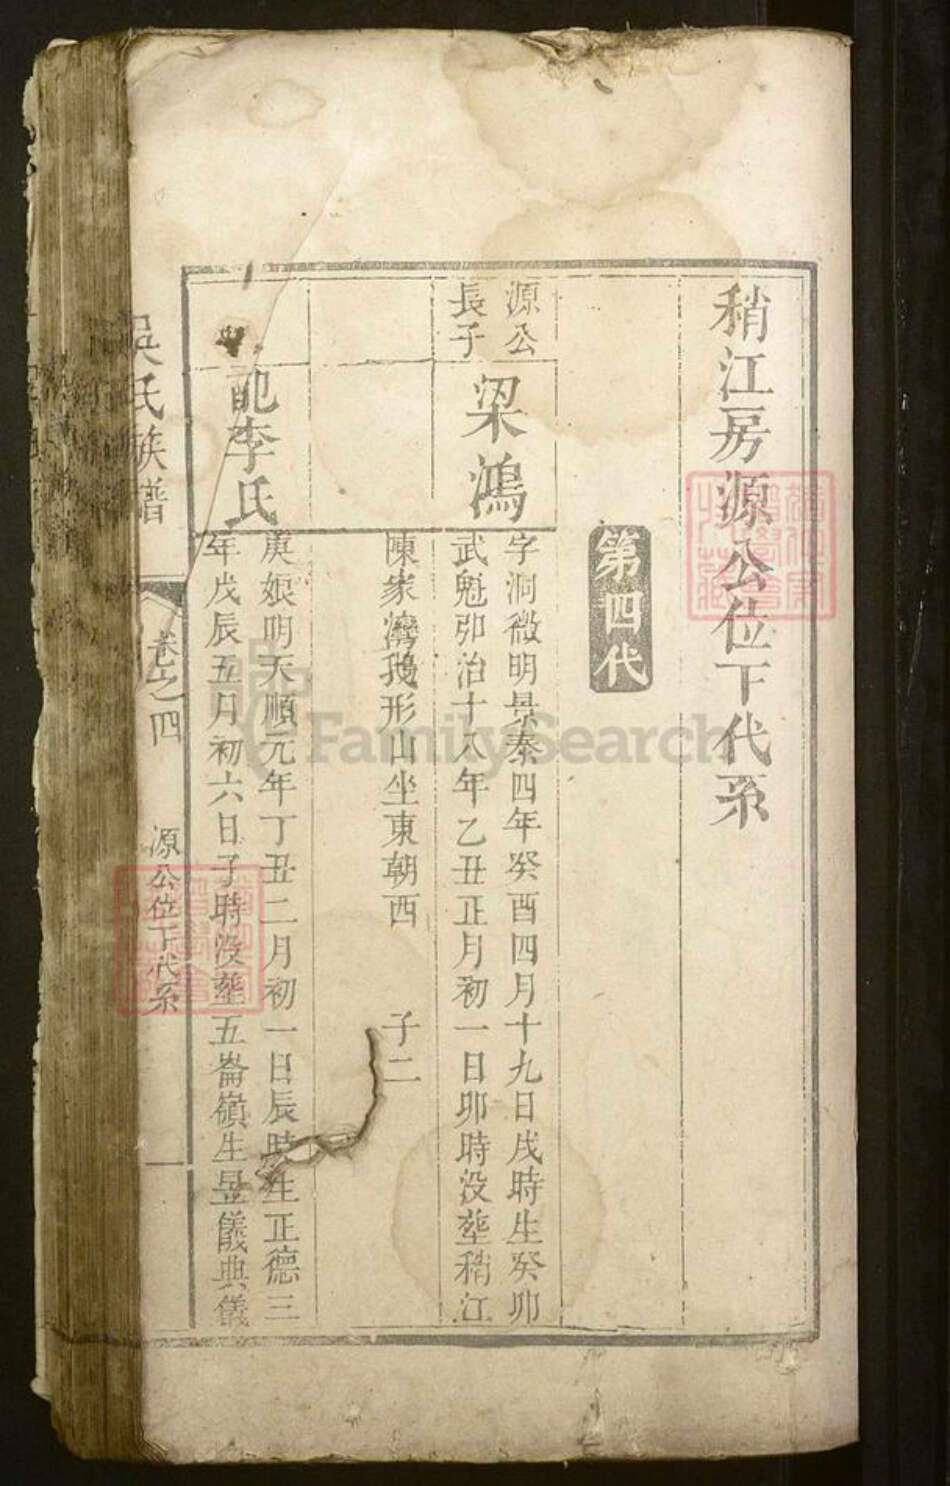 稍江房源公位下代系
第四代
源公
長子
梁鴻
字洞微明景泰四年癸酉四月十九日戌時生癸卯
武魁弘治十八年乙丑正月初一日卯時没塟稍江
陳家灣鵝形山坐東朝西 子二
配李氏
庚娘明天順元年丁丑二月初一日辰時生正德三
年戊辰五月初六日子時没塟五崙嶺生昱儀典儀
吳氏族譜
卷之四
源公位下代系
FamilySearch